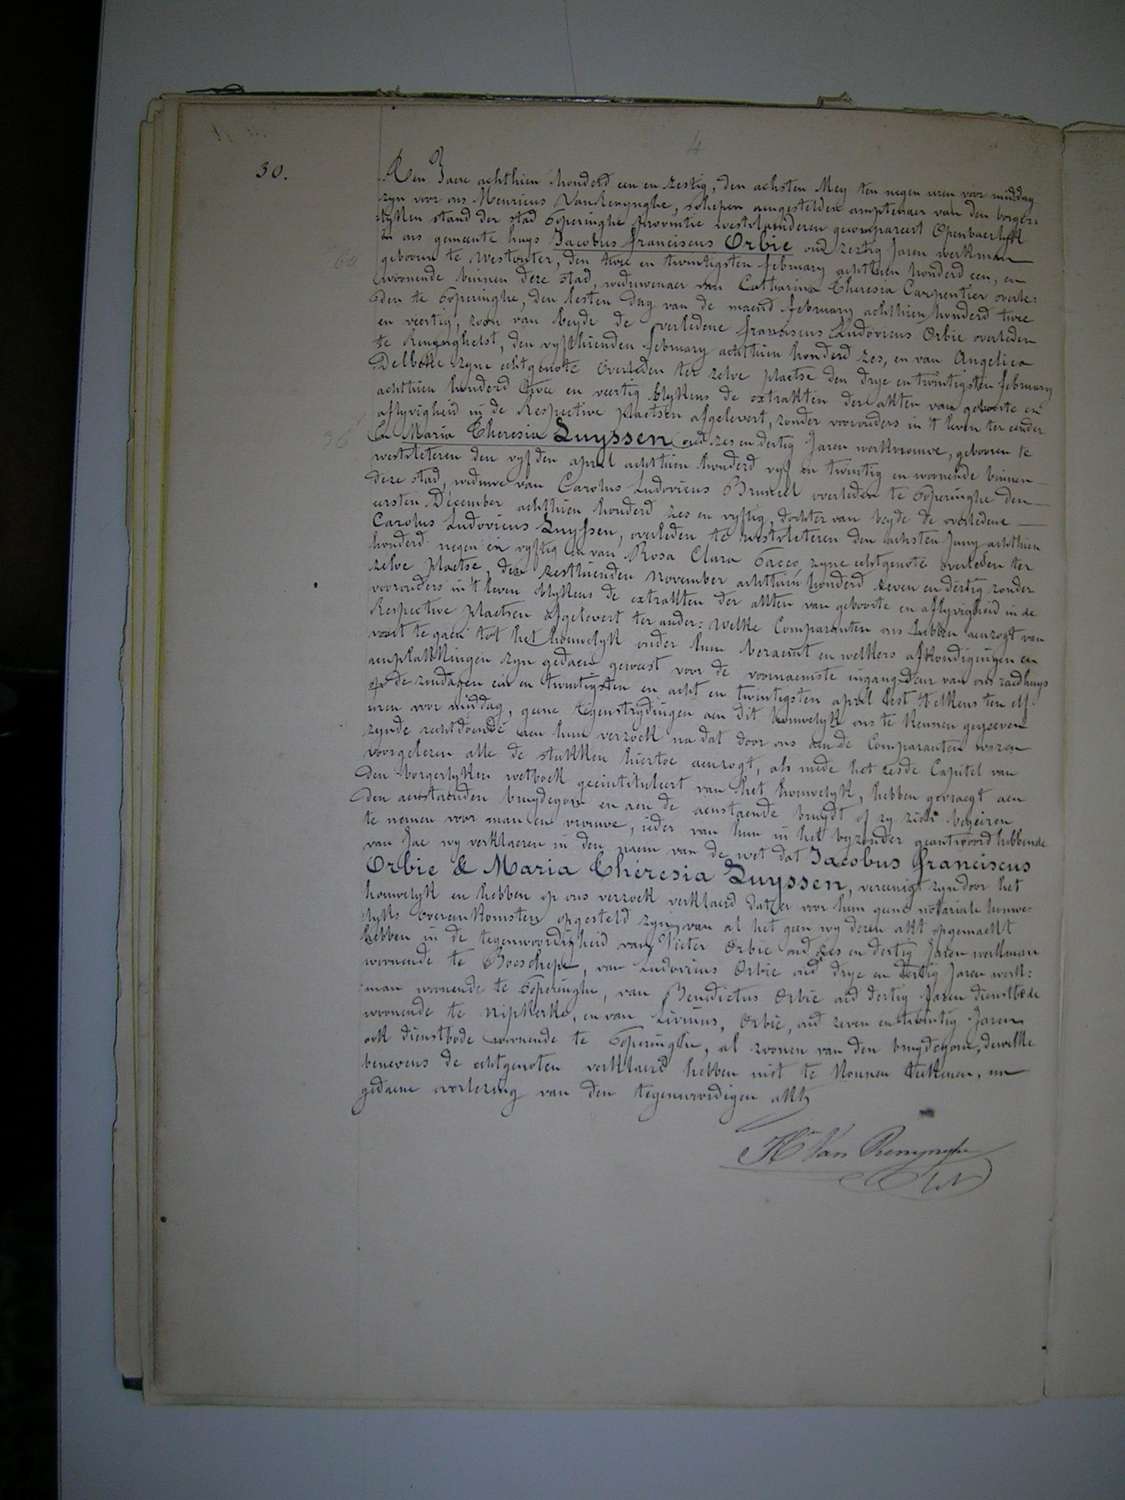 4
30.
Den Jaere achthien honderd een en zestig, den achsten Mey ten negen uren voor middag
zyn voor ons Henricus Van Renynghe, schepen aengestelden amptenaer van den borger-
lyken stand der stad Poperinghe provintie westvlaenderen gecompareert Openbaerlyk
in ons gemeente huys Jacobus franciscus Orbie oud zestig Jaren werkman
60
geboren te Westouter, den twee en twintigsten february achthien honderd een, en
woonende binnen deze stad, weduwenaer van Catharina Theresia Carpentier overle:
den te Poperinghe, den lesten dag van de maend february achthien honderd twee
en veertig, zoon van beyde de overledene franciscus Ludovicus Orbie overleden
te Renynghelst, den vyfthienden february achthien honderd zes, en van Angelica
Delbeke zyne echtgenote overleden ter zelve plaetse den drye en twintigsten february
achthien honderd twee en veertig blykens de extrakten der akten van geboorte en
aflyvigheid in de Respective plaetsen afgelevert, zonder voorouders in 't leven ter eender
36
En Maria Theresia Luyssen oud zes en dertig Jaren werkvrouwe, geboren te
westvleteren den vyfden april achthien honderd vyf en twintig en woonende binnen
deze stad, weduwe van Carolus Ludovicus Bruneel overleden te Poperinghe den
eersten December achthien honderd zes en vyftig, dochter van beyde de overledene
Carolus Ludovicus Luyssen, overleden te westvleteren den achsten Juny achthien
honderd negen en vyftig en van Rosa Clara Pacco zyne echtgenote overleden ter
zelve plaetse, den zesthienden November achthien honderd zeven en dertig zonder
voorouders in 't leven blykens de extrakten der akten van geboorte en aflyvigheid in de
Respective plaetsen afgelevert ter ander: welke Comparanten ons hebben aenzogt van
voort te gaen tot het houwelyk onder hun beraemt en welkers afkondigingen en
aenplakkingen zyn gedaen geweest voor de voornaemste ingangdeur van ons raedhuys
op de zondagen een en twintigsten en acht en twintigsten april lest telkens ten elf
uren voor middag, geene tegenstrydingen aen dit houwelyk ons te kennen gegeeven
zynde rechtdoende aen hun verzoek na dat door ons aen de Comparanten waren
voorgelezen alle de stukken hiertoe aenzogt, als mede het zesde Capitel van
den borgerlyken wetboek geëintituleert van het houwelyk, hebben gevraegt aen
den aenstaenden bruydegom en aen de aenstaende bruydt of zy zich begeiren
te nemen voor man en vrouwe, ieder van hun in het byzonder geantwoord hebbende
van Jae wy verklaeren in den naem van de wet dat Jacobus franciscus
Orbie & Maria Theresia Luyssen, vereenigt zyn door het
houwelyk en hebben op ons verzoek verklaerd dat er voor hun geene notariale houwe-
lyks overeenkomsten opgesteld zyn, van al het geen wy deren akt opgemaekt
hebben in de tegenwoordigheid van Pieter Orbie oud zes en dertig Jaren werkman
woonende te Boeschepe, van Ludovicus Orbie oud drye en dertig Jaren werk:
man woonende te Poperinghe, van Benedictus Orbie oud dertig Jaren dienstbode
woonende te Nipkerke, en van Livinus, Orbie, oud zeven en twintig Jaren
ook dienstbode woonende te Poperinghe, al zoonen van den bruydegom, dewelke
benevens de echtgenoten verklaerd hebben niet te konnen teekenen, na
gedaene voorlezing van den tegenwoordigen akt
H Van Renynghe